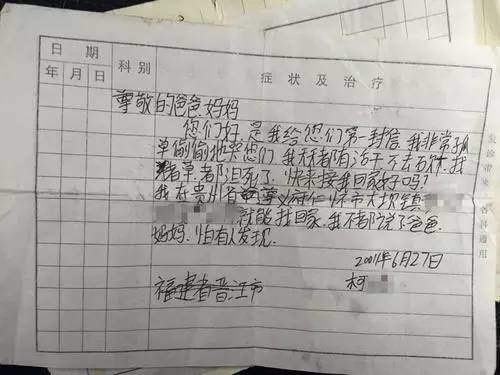 日 期 科别 症状及治疗
年 月 日
尊敬的爸爸.妈妈
您们好.是我给您们第一封信.我非常孤
单偷偷地来您们 我天天都有活干不去就打.我
都 死了.快来接我回家好吗?
我在贵州省遵义府仁怀市大坝镇
就能找回家.我不都说了爸爸.
妈妈.怕有人发现.
2001年6月27日
福建省晋江市 柯
各科通用